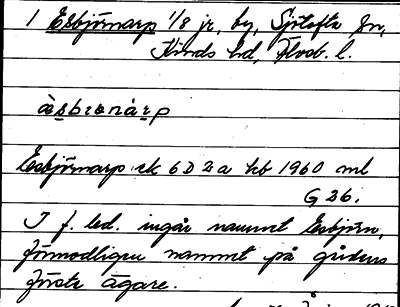 1 Esbjörnarp 1/8 jr, by, Sjötofta sn,
Kinds hd, Älvsb. l.
Esbjörnarp ek 6D 2a hb 1960 ml
G 26.
I f. led. ingår namnet Esbjörn,
förmodligen namnet på gårdens
förste ägare.